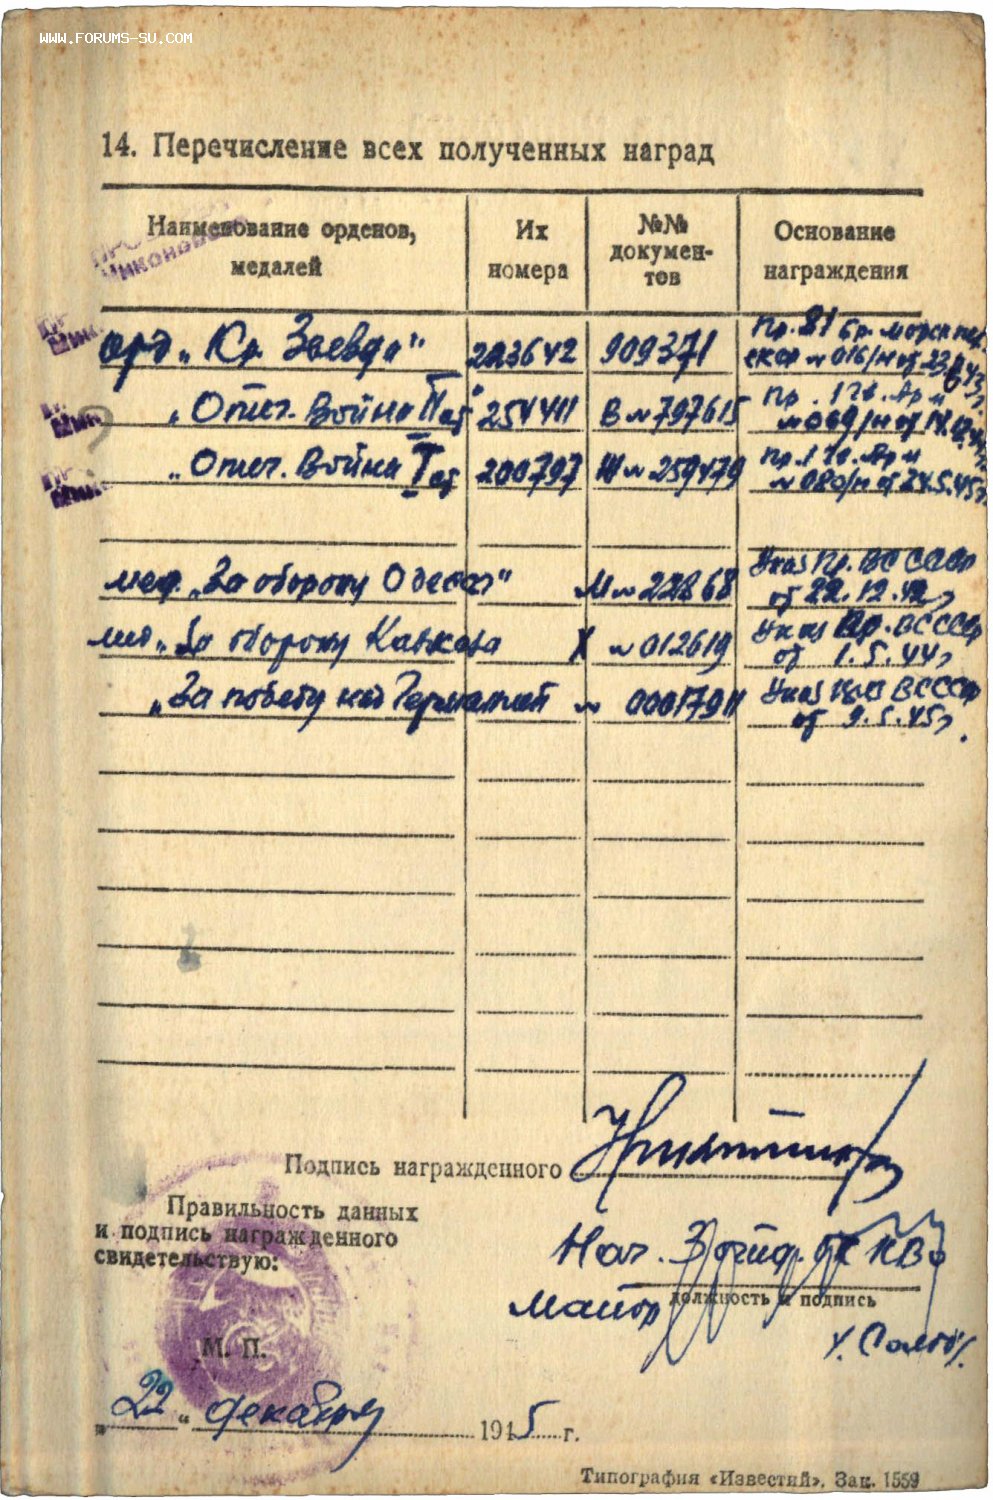 WWW.FORUMS-SU.COM
14. Перечисление всех полученных наград
Наименование орденов, медалей
Их номера
№№ докумен-тов
Основание награждения
орд „Кр. Звезда" 203642 909371 Пр. 81 бр. морск
№ 016/н от
„Отеч. Война II ст" 254411 В № 797615 Пр. Арм
№ 069/н от
„Отеч. Война I ст 200797 Ж № 259479 Пр. Арм
№ 080/н от 24.5.45г.
мед. „За оборону Одессы" М № 22868 Указ Пр. ВС СССР
от 22.12.42г
мед „За оборону Кавказа Х № 012619 Указ Пр. ВС СССР
от 1.5.44г
„За победу над Германией № 0001791 Указ ВС СССР
от 9.5.45г.
Подпись награжденного
Правильность данных
и подпись награжденного
свидетельствую:
Нач. КВО
должность и подпись
Майор
М. П.
„22" декабря 1945 г.
Типография «Известий». Зак. 1559